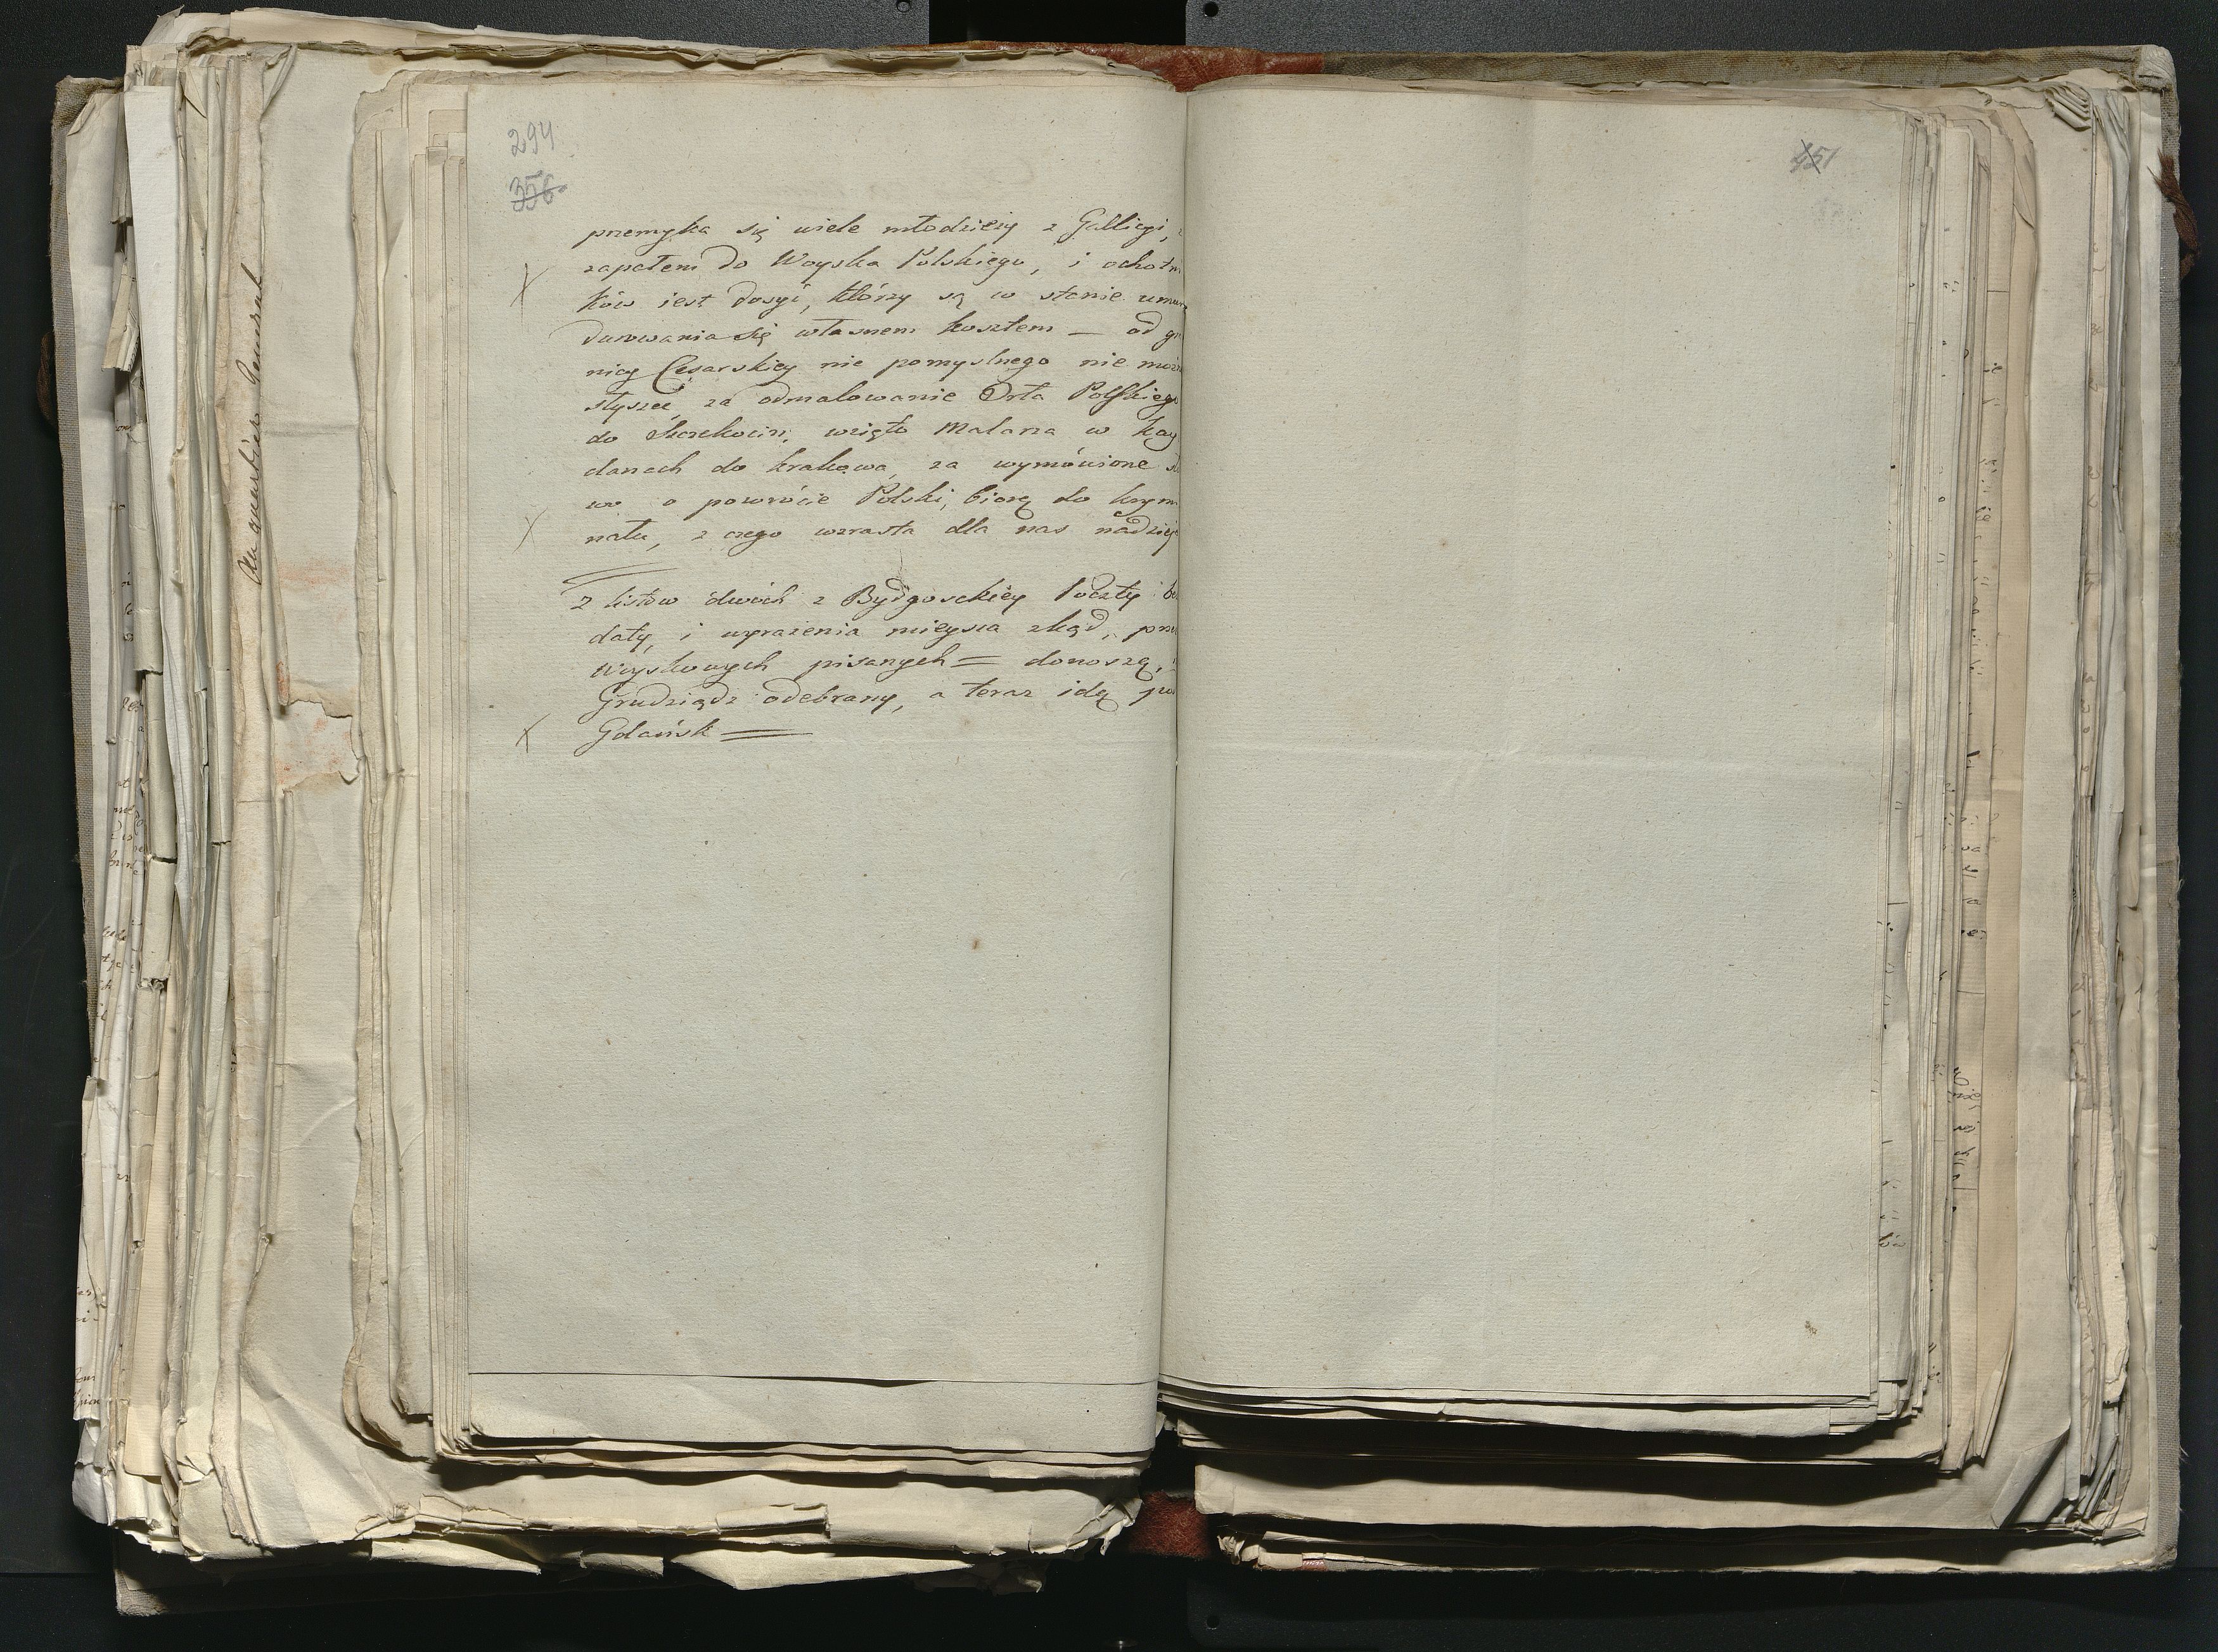 294
356
przemyka się wiele młodzieży z Gallicyi,
zapałem do Woyska Polskiego, i ochotni
ków iest dosyć, którzy są w stanie umun
durowania się własnem kosztem — od gra
nicy Cesarskiey nie pomyslnego nie możn
słyszeć, za odmalowanie Orła Polskiego
do Szczekocin, wzięto Malarza w kay
danach do Krakowa, za wymówione sło
wo o powrócie Polski, biorą do krymi
nału, z czego wzrasta dla nas nadzieja
Z listów dwóch z Bydgoskiey Poczty be
daty, i wyrażenia mieysca zkąd, prze
Woyskowych pisanych = donoszą,
Grudziądz odebrany, a teraz idą po
Gdańsk =
451